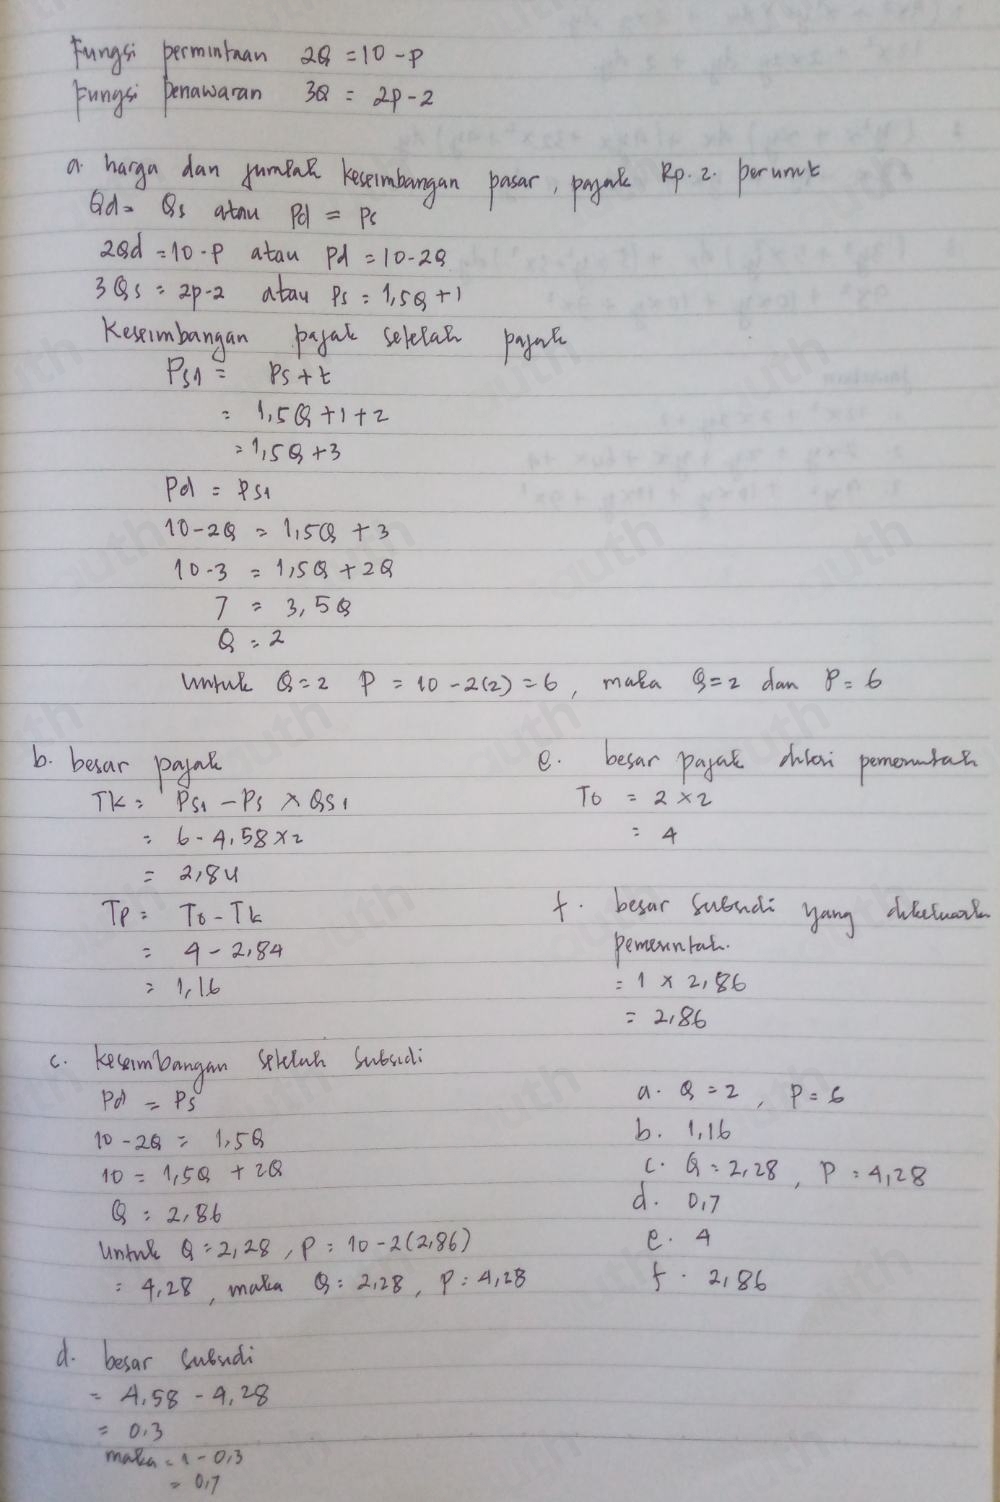 Fungsi permintaan 2Q = 10 - P
Fungsi penawaran 3Q = 2p - 2
a. harga dan jumlah keseimbangan pasar, pajak Rp. 2. perunit
Qd = Qs atau Pd = Ps
2Qd = 10 - P atau Pd = 10 - 2Q
3Qs = 2p - 2 atau Ps = 1,5Q + 1
Keseimbangan pajak setelah pajak
Ps1 = Ps + t
= 1,5Q + 1 + 2
= 1,5Q + 3
Pd = Ps1
10 - 2Q = 1,5Q + 3
10 - 3 = 1,5Q + 2Q
7 = 3,5Q
Q = 2
Untuk Q = 2 P = 10 - 2(2) = 6, maka Q = 2 dan P = 6
b. besar pajak
TK = Ps1 - Ps × Qs1
= 6 - 4,58 × 2
= 2,84
Tp = To - Tk
= 4 - 2,84
= 1,16
c. keseimbangan setelah subsidi
Pd = Ps
10 - 2Q = 1,5Q
10 = 1,5Q + 2Q
Q = 2,86
Untuk Q = 2,28, P = 10 - 2(2,86)
= 4,28, maka Q = 2,28, P = 4,28
d. besar subsidi
= 4,58 - 4,28
= 0,3
maka = 1 - 0,3
= 0,7
e. besar pajak pemerintah
To = 2 × 2
= 4
f. besar subsidi yang
pemerintah.
= 1 × 2,86
= 2,86
a. Q = 2, P = 6
b. 1,16
c. Q = 2,28, P = 4,28
d. 0,7
e. 4
f. 2,86